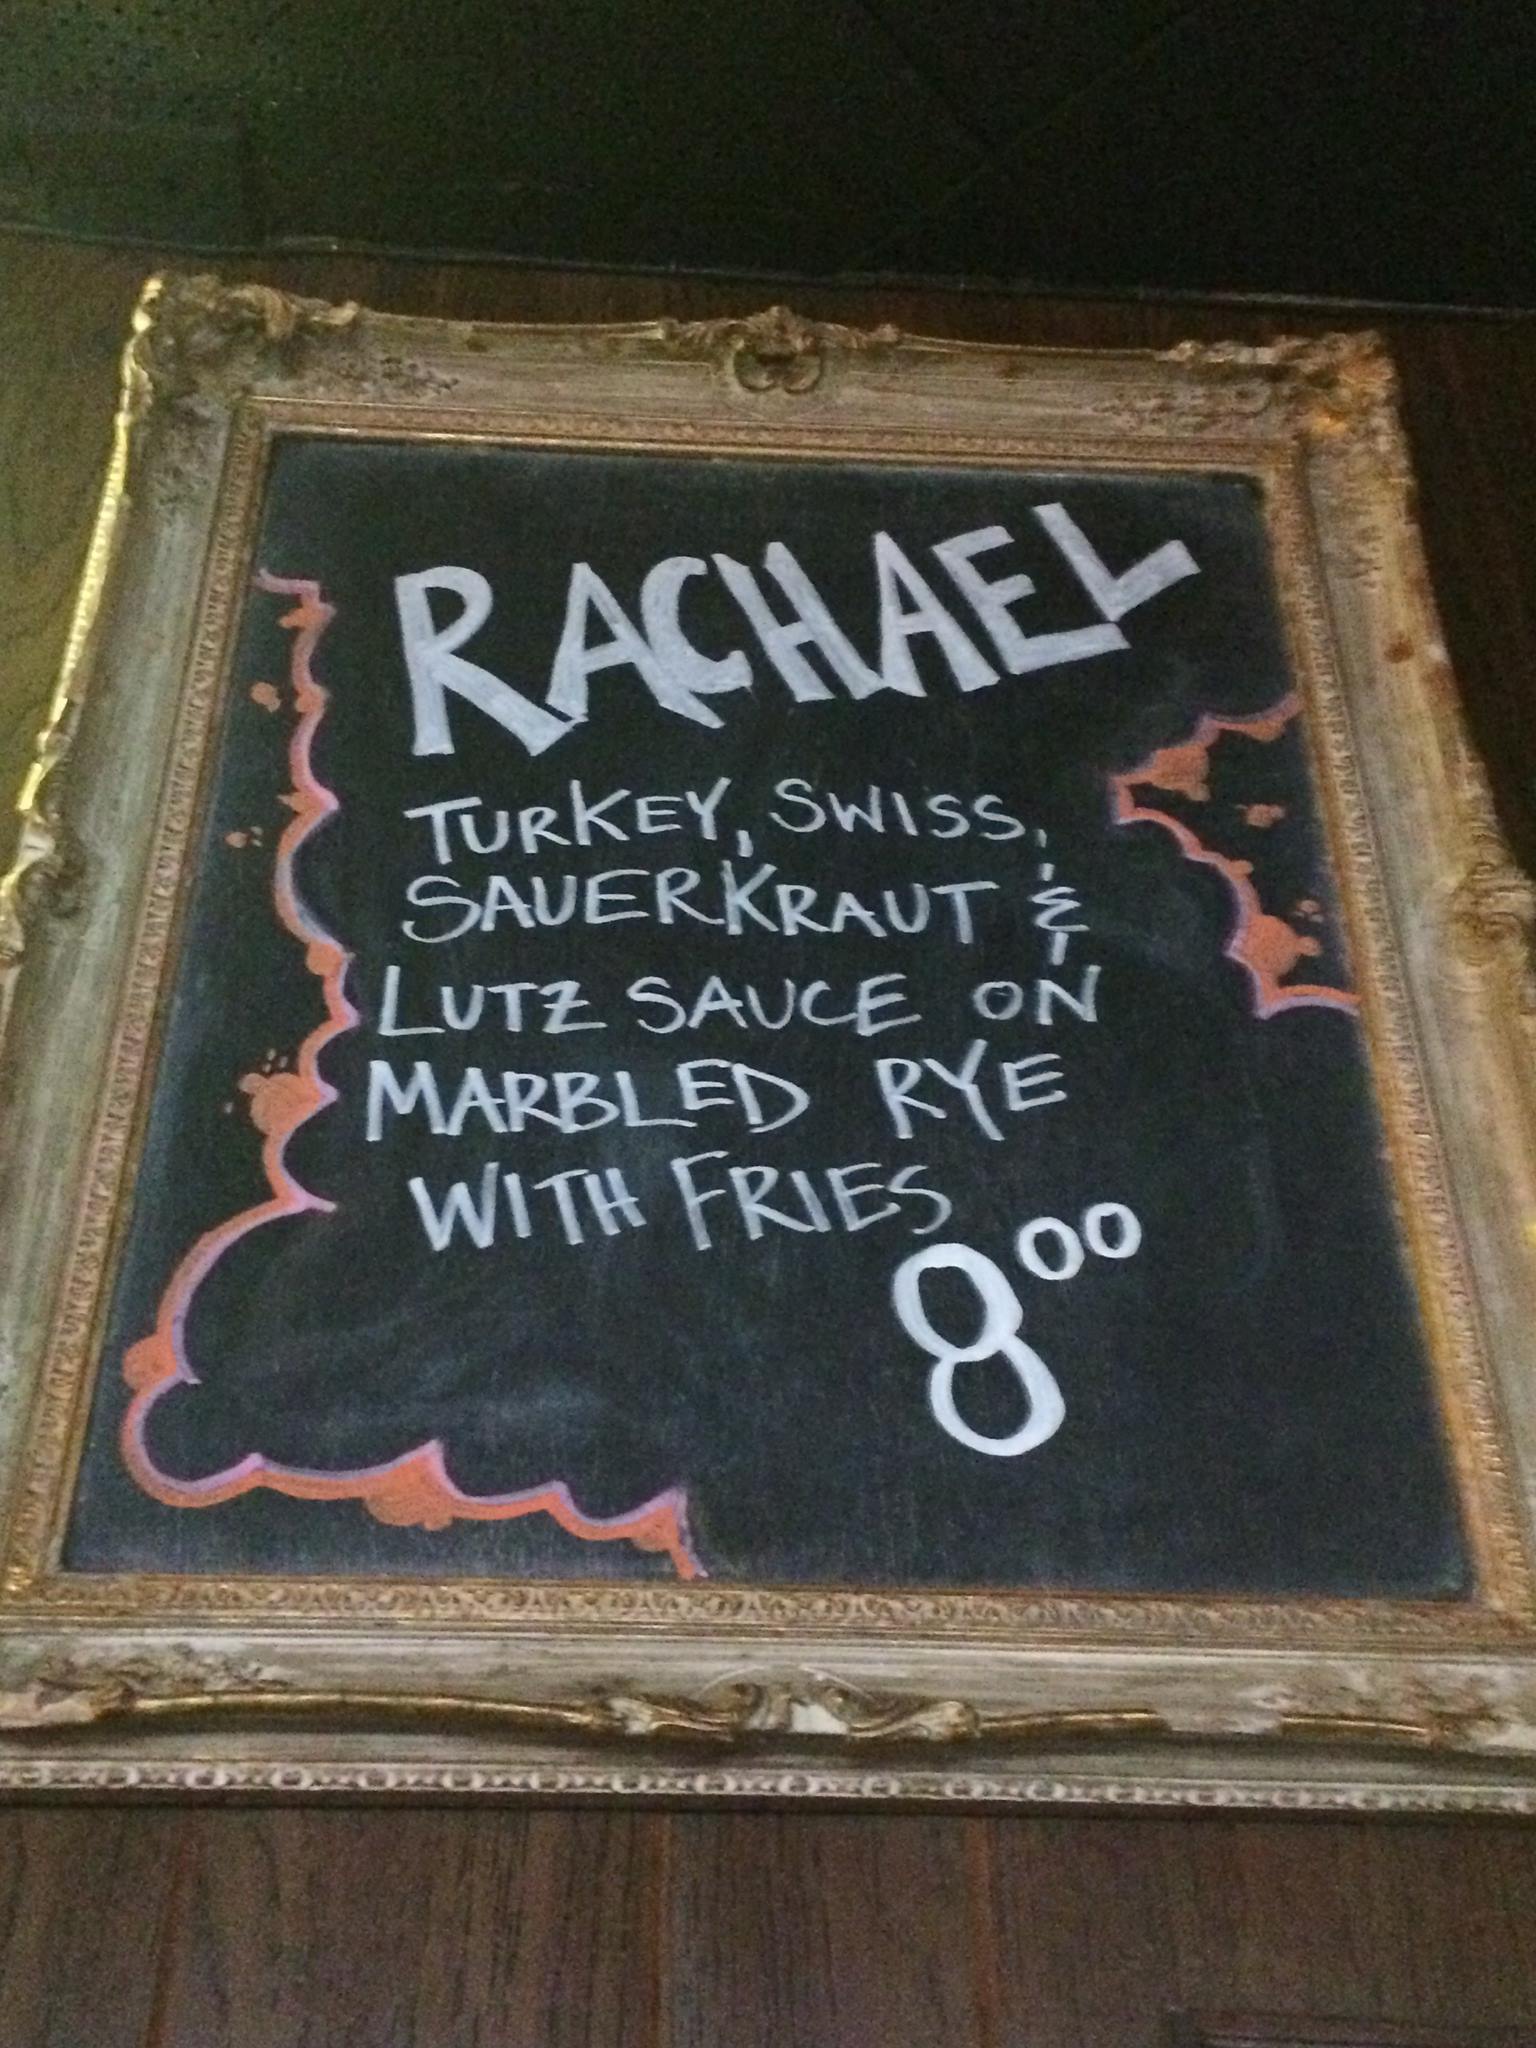 RACHAEL
TURKEY, SWISS,
SAUERKRAUT &
LUTZ SAUCE ON
MARBLED RYE
WITH FRIES
8.00